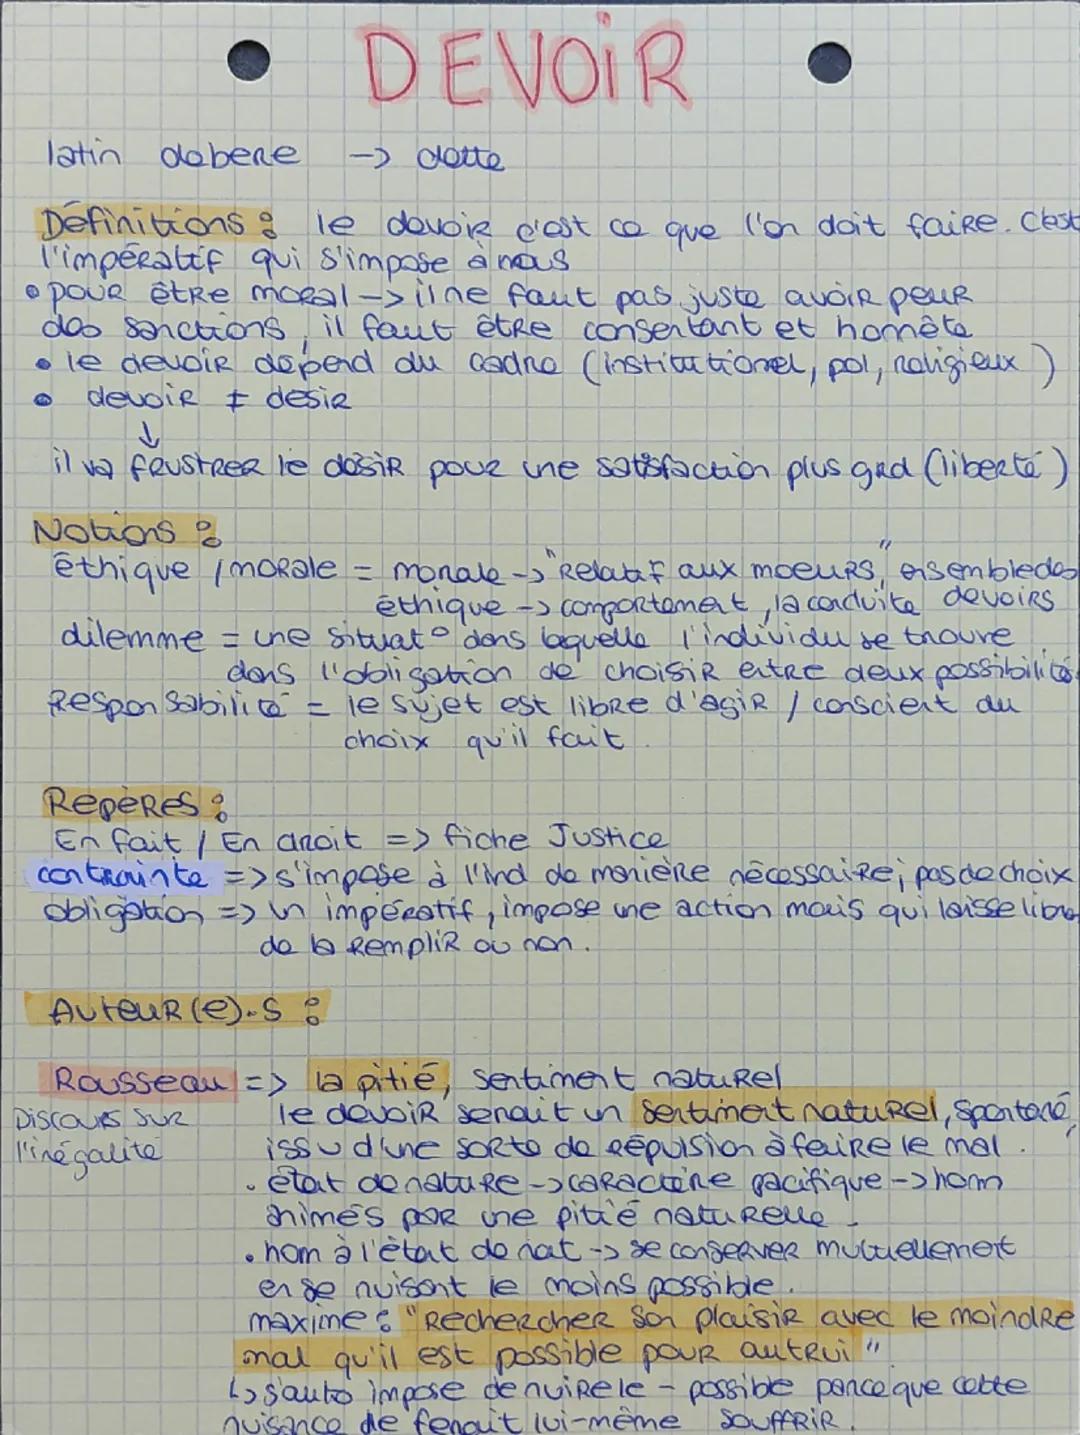 DEVOIR
latin debere -> dette
Définitions : le devoir c'est ce que l'on doit faire. C'est
l'impératif qui s'impose à nous
• pour être moral -> il ne faut pas juste avoir peur
des sanctions, il faut être consentant et honnête
• le devoir dépend du cadre (institutionel, pol, religieux)
• devoir ≠ desir
↓
il va frustrer le désir pour une satisfaction plus grd (liberté)
Notions :
éthique / morale = morale -> "Relatif aux moeurs", ensemble des
éthique -> comportement, la conduite devoirs
dilemme = une situat° dans laquelle l'individu se trouve
dans l'obligation de choisir entre deux possibilités.
Responsabilité = le sujet est libre d'agir / conscient du
choix qu'il fait.
Repères :
En fait / En droit => fiche Justice
contrainte => s'impose à l'ind de manière nécessaire; pas de choix
obligation => un impératif, impose une action mais qui laisse libre
de la remplir ou non.
Auteur(e).s :
Rousseau => la pitié, sentiment naturel
Discours sur le devoir serait un sentiment naturel, spontané,
l'inégalité issu d'une sorte de répulsion à faire le mal.
• état de nature -> caractère pacifique -> hom
animés par une pitié naturelle.
• hom à l'état de nat -> se conserver mutuellement
en se nuisant le moins possible.
maxime : "Rechercher son plaisir avec le moindre
mal qu'il est possible pour autrui"
↳ s'auto impose de nuire le - possible parce que cette
nuisance de ferait lui-même souffrir.